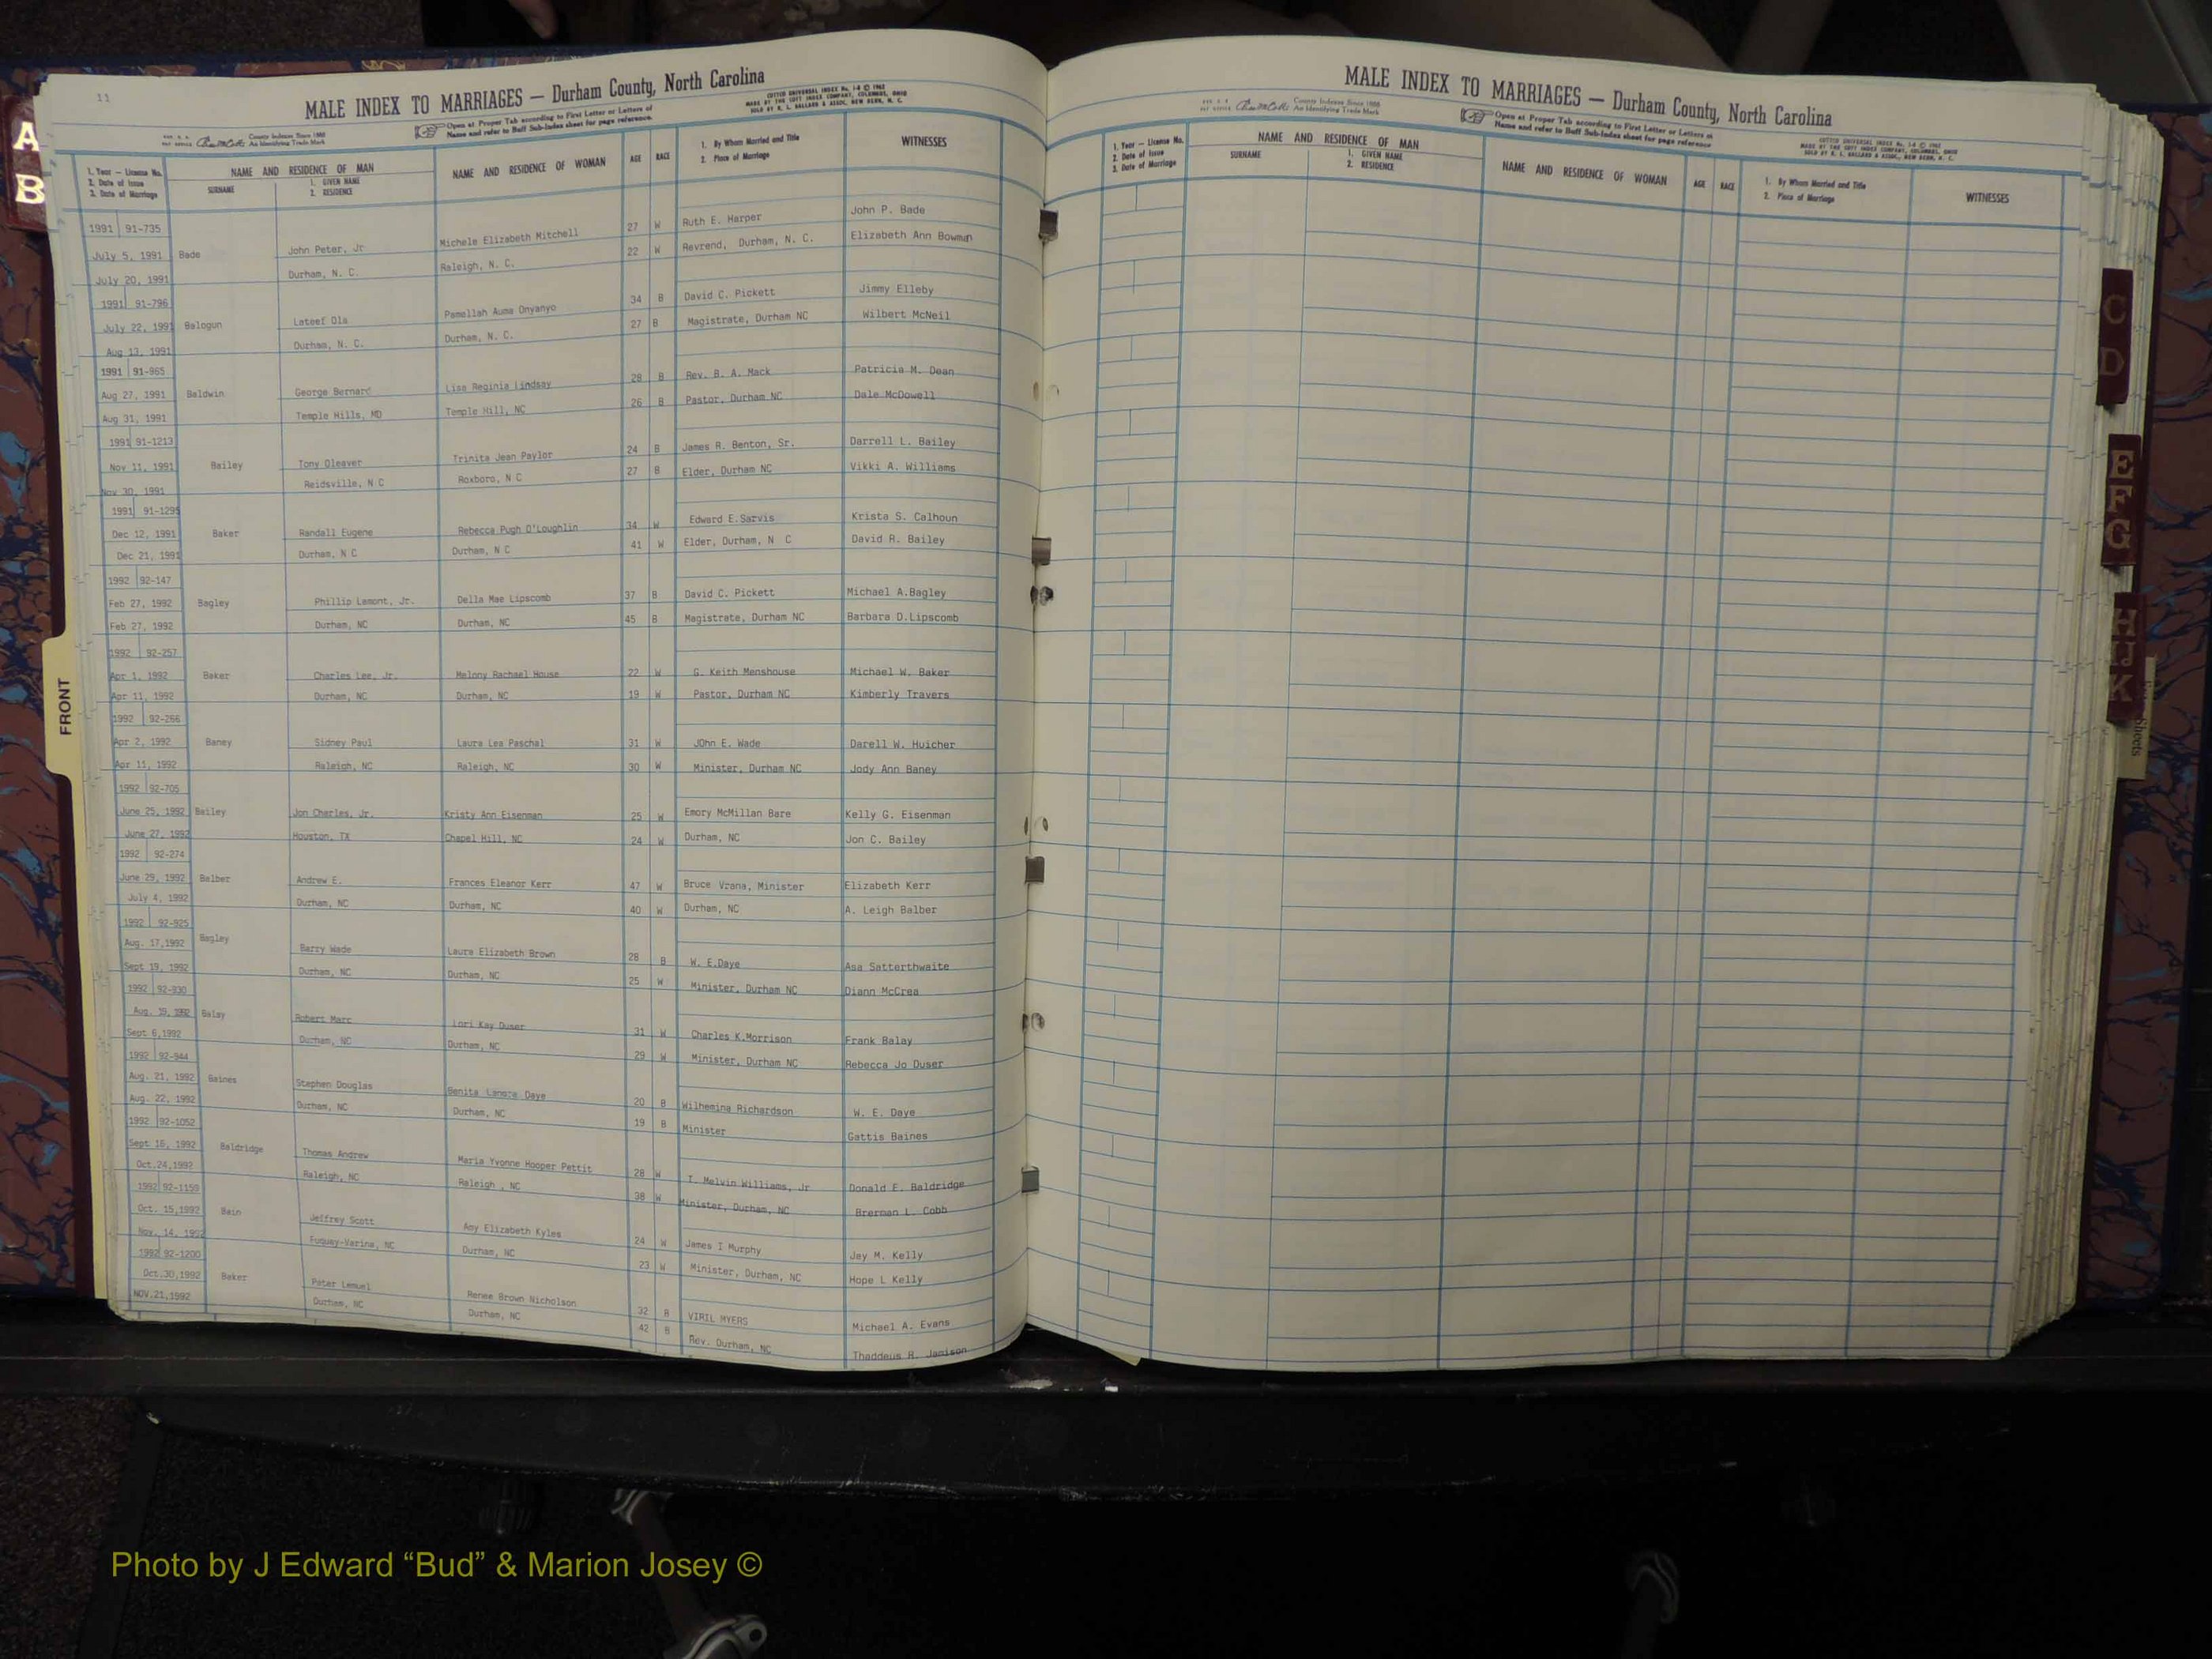 11
MALE INDEX TO MARRIAGES — Durham County, North Carolina
COTT'S UNIVERSAL INDEX No. 1-8 © 1962
MADE BY THE COTT INDEX COMPANY, COLUMBUS, OHIO
SOLD BY K. L. BALLARD & ASSOC, NEW BERN, N. C.
County Indexes Since 1888
An Identifying Trade Mark
Open at Proper Tab according to First Letter or Letters of
Name and refer to Buff Sub-Index sheet for page reference.
1. Year — License No.
2. Date of Issue
3. Date of Marriage
NAME AND RESIDENCE OF MAN
SURNAME
1. GIVEN NAME
2. RESIDENCE
NAME AND RESIDENCE OF WOMAN
AGE
RACE
1. By Whom Married and Title
2. Place of Marriage
WITNESSES
1991 91-735 27 W Ruth E. Harper John P. Bade
July 5, 1991 Bade John Peter, Jr Michele Elizabeth Mitchell 22 W Revrend, Durham, N. C. Elizabeth Ann Bowman
July 20, 1991 Durham, N. C. Raleigh, N. C.
1991 91-796 34 B David C. Pickett Jimmy Elleby
July 22, 1991 Balogun Lateef Ola Pamellah Auma Onyanyo 27 B Magistrate, Durham NC Wilbert McNeil
Aug 13, 1991 Durham, N. C. Durham, N. C.
1991 91-965 28 B Rev. B. A. Mack Patricia M. Dean
Aug 27, 1991 Baldwin George Bernard Lisa Reginia Lindsay 26 B Pastor, Durham NC Dale McDowell
Aug 31, 1991 Temple Hills, MD Temple Hill, NC
1991 91-1213 24 B James R. Benton, Sr. Darrell L. Bailey
Nov 11, 1991 Bailey Tony Oleaver Trinita Jean Paylor 27 B Elder, Durham NC Vikki A. Williams
Nov 30, 1991 Reidsville, N C Roxboro, N C
1991 91-1295 Edward E.Sarvis Krista S. Calhoun
Dec 12, 1991 Baker Randall Eugene Rebecca Pugh O'Loughlin 34 W Elder, Durham, N C David R. Bailey
Dec 21, 1991 Durham, N C Durham, N C 41 W
1992 92-147
Feb 27, 1992 Bagley Phillip Lamont, Jr. Della Mae Lipscomb 37 B David C. Pickett Michael A.Bagley
Feb 27, 1992 Durham, NC Durham, NC 45 B Magistrate, Durham NC Barbara D.Lipscomb
1992 92-257
Apr 1, 1992 Baker Charles Lee, Jr. Melony Rachael House 22 W G. Keith Menshouse Michael W. Baker
Apr 11, 1992 Durham, NC Durham, NC 19 W Pastor, Durham NC Kimberly Travers
1992 92-266
Apr 2, 1992 Baney Sidney Paul Laura Lea Paschal 31 W JOhn E. Wade Darell W. Huicher
Apr 11, 1992 Raleigh, NC Raleigh, NC 30 W Minister, Durham NC Jody Ann Baney
1992 92-705
June 25, 1992 Bailey Jon Charles, Jr. Kristy Ann Eisenman 25 W Emory McMillan Bare Kelly G. Eisenman
June 27, 1992 Houston, TX Chapel Hill, NC 24 W Durham, NC Jon C. Bailey
1992 92-274
June 29, 1992 Balber Andrew E. Frances Eleanor Kerr 47 W Bruce Vrana, Minister Elizabeth Kerr
July 4, 1992 Durham, NC Durham, NC 40 W Durham, NC A. Leigh Balber
1992 92-825
Aug. 17,1992 Bagley Barry Wade Laura Elizabeth Brown 28 B W. E.Daye Asa Satterthwaite
Sept 19, 1992 Durham, NC Durham, NC 25 W Minister, Durham NC Diann McCrea
1992 92-830
Aug. 19, 1992 Balay Robert Marc Lori Kay Duser 31 W Charles K.Morrison Frank Balay
Sept 6,1992 Durham, NC Durham, NC 29 W Minister, Durham NC Rebecca Jo Duser
1992 92-844
Aug. 21, 1992 Baines Stephen Douglas Benita Lanora Daye 20 B Wilhemina Richardson W. E. Daye
Aug. 22, 1992 Durham, NC Durham, NC 19 B Minister Gattis Baines
1992 92-1052
Sept 16, 1992 Baldridge Thomas Andrew Maria Yvonne Hooper Pettit 28 W T. Melvin Williams, Jr Donald E. Baldridge
Oct.24,1992 Raleigh, NC Raleigh , NC 38 W Minister, Durham, NC Brerman L. Cobb
1992 92-1159
Oct. 15,1992 Bain Jeffrey Scott Amy Elizabeth Kyles 24 W James I Murphy Jay M. Kelly
Nov. 14, 1992 Fuquay-Varina, NC Durham, NC 23 W Minister, Durham, NC Hope L Kelly
1992 92-1200
Oct.30,1992 Baker Peter Lemuel Renee Brown Nicholson 32 B VIRIL MYERS Michael A. Evans
NOV.21,1992 Durham, NC Durham, NC 42 B Rev. Durham, NC Thaddeus R. Jamison
MALE INDEX TO MARRIAGES — Durham County, North Carolina
County Indexes Since 1888
An Identifying Trade Mark
Open at Proper Tab according to First Letter or Letters of
Name and refer to Buff Sub-Index sheet for page reference
COTT'S UNIVERSAL INDEX No. 1-8 © 1962
MADE BY THE COTT INDEX COMPANY, COLUMBUS, OHIO
SOLD BY K. L. BALLARD & ASSOC, NEW BERN, N. C.
1. Year — License No.
2. Date of Issue
3. Date of Marriage
NAME AND RESIDENCE OF MAN
SURNAME
1. GIVEN NAME
2. RESIDENCE
NAME AND RESIDENCE OF WOMAN
AGE
RACE
1. By Whom Married and Title
2. Place of Marriage
WITNESSES
A
B
FRONT
C
D
E
F
G
H
IJ
K
Sheets
Photo by J Edward “Bud” & Marion Josey ©